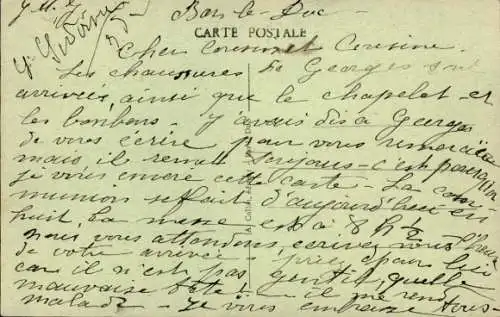 Bar-le-Duc
CARTE POSTALE
Cher Cousin et Cousine.
Les chaussures de Georges sont
arrivées, ainsi que le chapelet et
les bonbons. J'avais dis à Georges
de vous écrire pour vous remercier
mais, il remet toujours - c'est pourquoi
je vous envoie cette carte - La com
munion se fait d'aujourd'hui en
huit. La messe est à 8 h ½
nous vous attendons, écrivez nous l'heure
de votre arrivée - priez pour lui
car il n'est pas gentil, quelle
mauvaise tête! il me rend
malade - Je vous embrasse tous